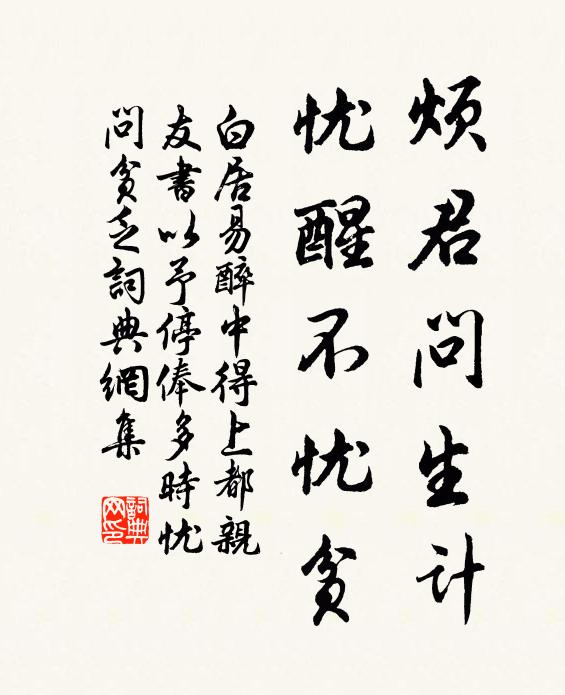 烦君问生计
忧醒不忧贫
白居易醉中得上都親
友書以予停俸多時忧
問贫乏詞典網集
詞典
网印